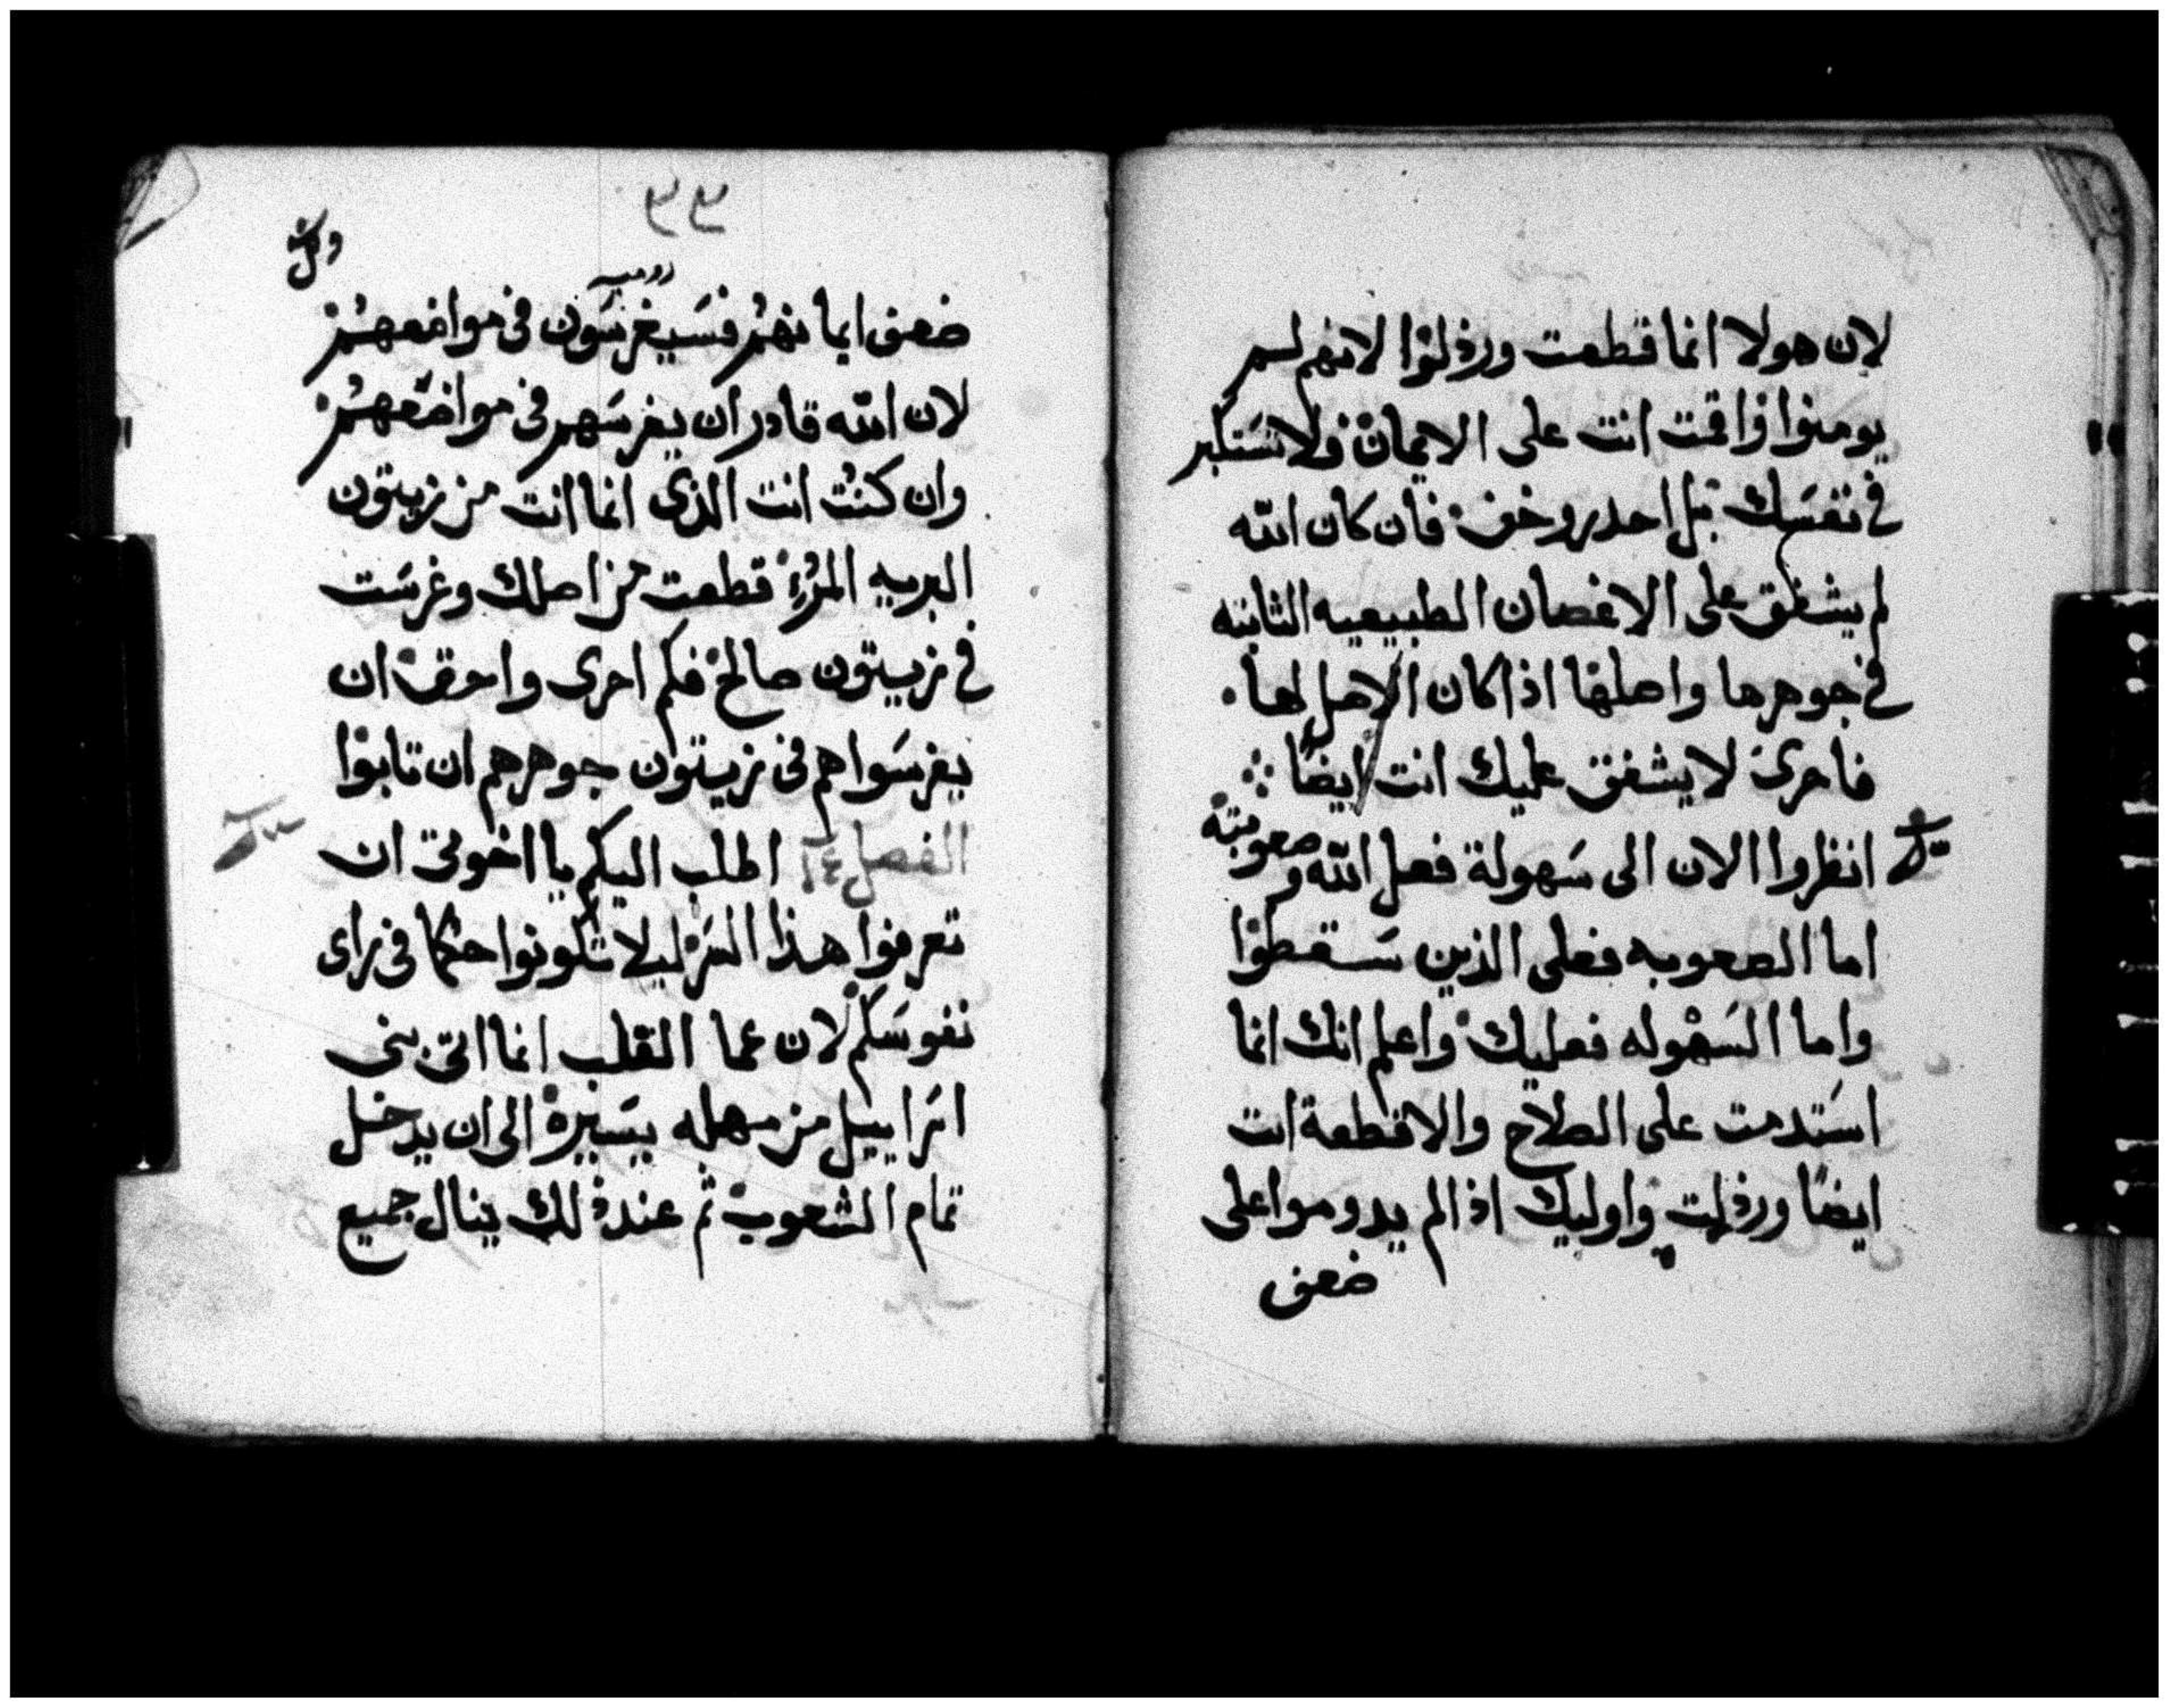 لان هولا انما قطعت ورذلوا لانهم لم
يومنوا واقمت انت على الايمان ولا تستكبر
في نفسك بل احدر وخف فان كان الله
لم يشفق على الاغصان الطبيعيه الثابته
في جوهرها واصلها اذا كان الاصل لها
فاحرى لا يشفق عليك انت ايضًا
انظروا الان الى سهولة فعل الله وصعوبته
اما الصعوبه فعلى الذين سقطوا
واما السهوله فعليك واعلم انك انما
استدمت على الصلاح والا قطعة انت
ايضًا ورذلت واوليك اذا لم يدوموا على
ضعف
روميه
ضعف ايمانهم فسيغرسون في مواضعهم
لان الله قادر ان يغرسهم في مواضعهم
وان كنت انت الذى انما انت من زيتون
البريه المره قطعت من اصلك وغرست
في زيتون صالح فكم احرى واحق ان
يغرسوا هم في زيتون جوهرهم ان تابوا
الفصل اطلب اليكم يا اخوتى ان
تعرفوا هذا السر ليلا تكونوا حكما في راى
نفوسكم لان عما القلب انما اتى بنى
اسراييل من مهله يسيرة الى ان يدخل
تمام الشعوب ثم عند ذلك ينال جميع